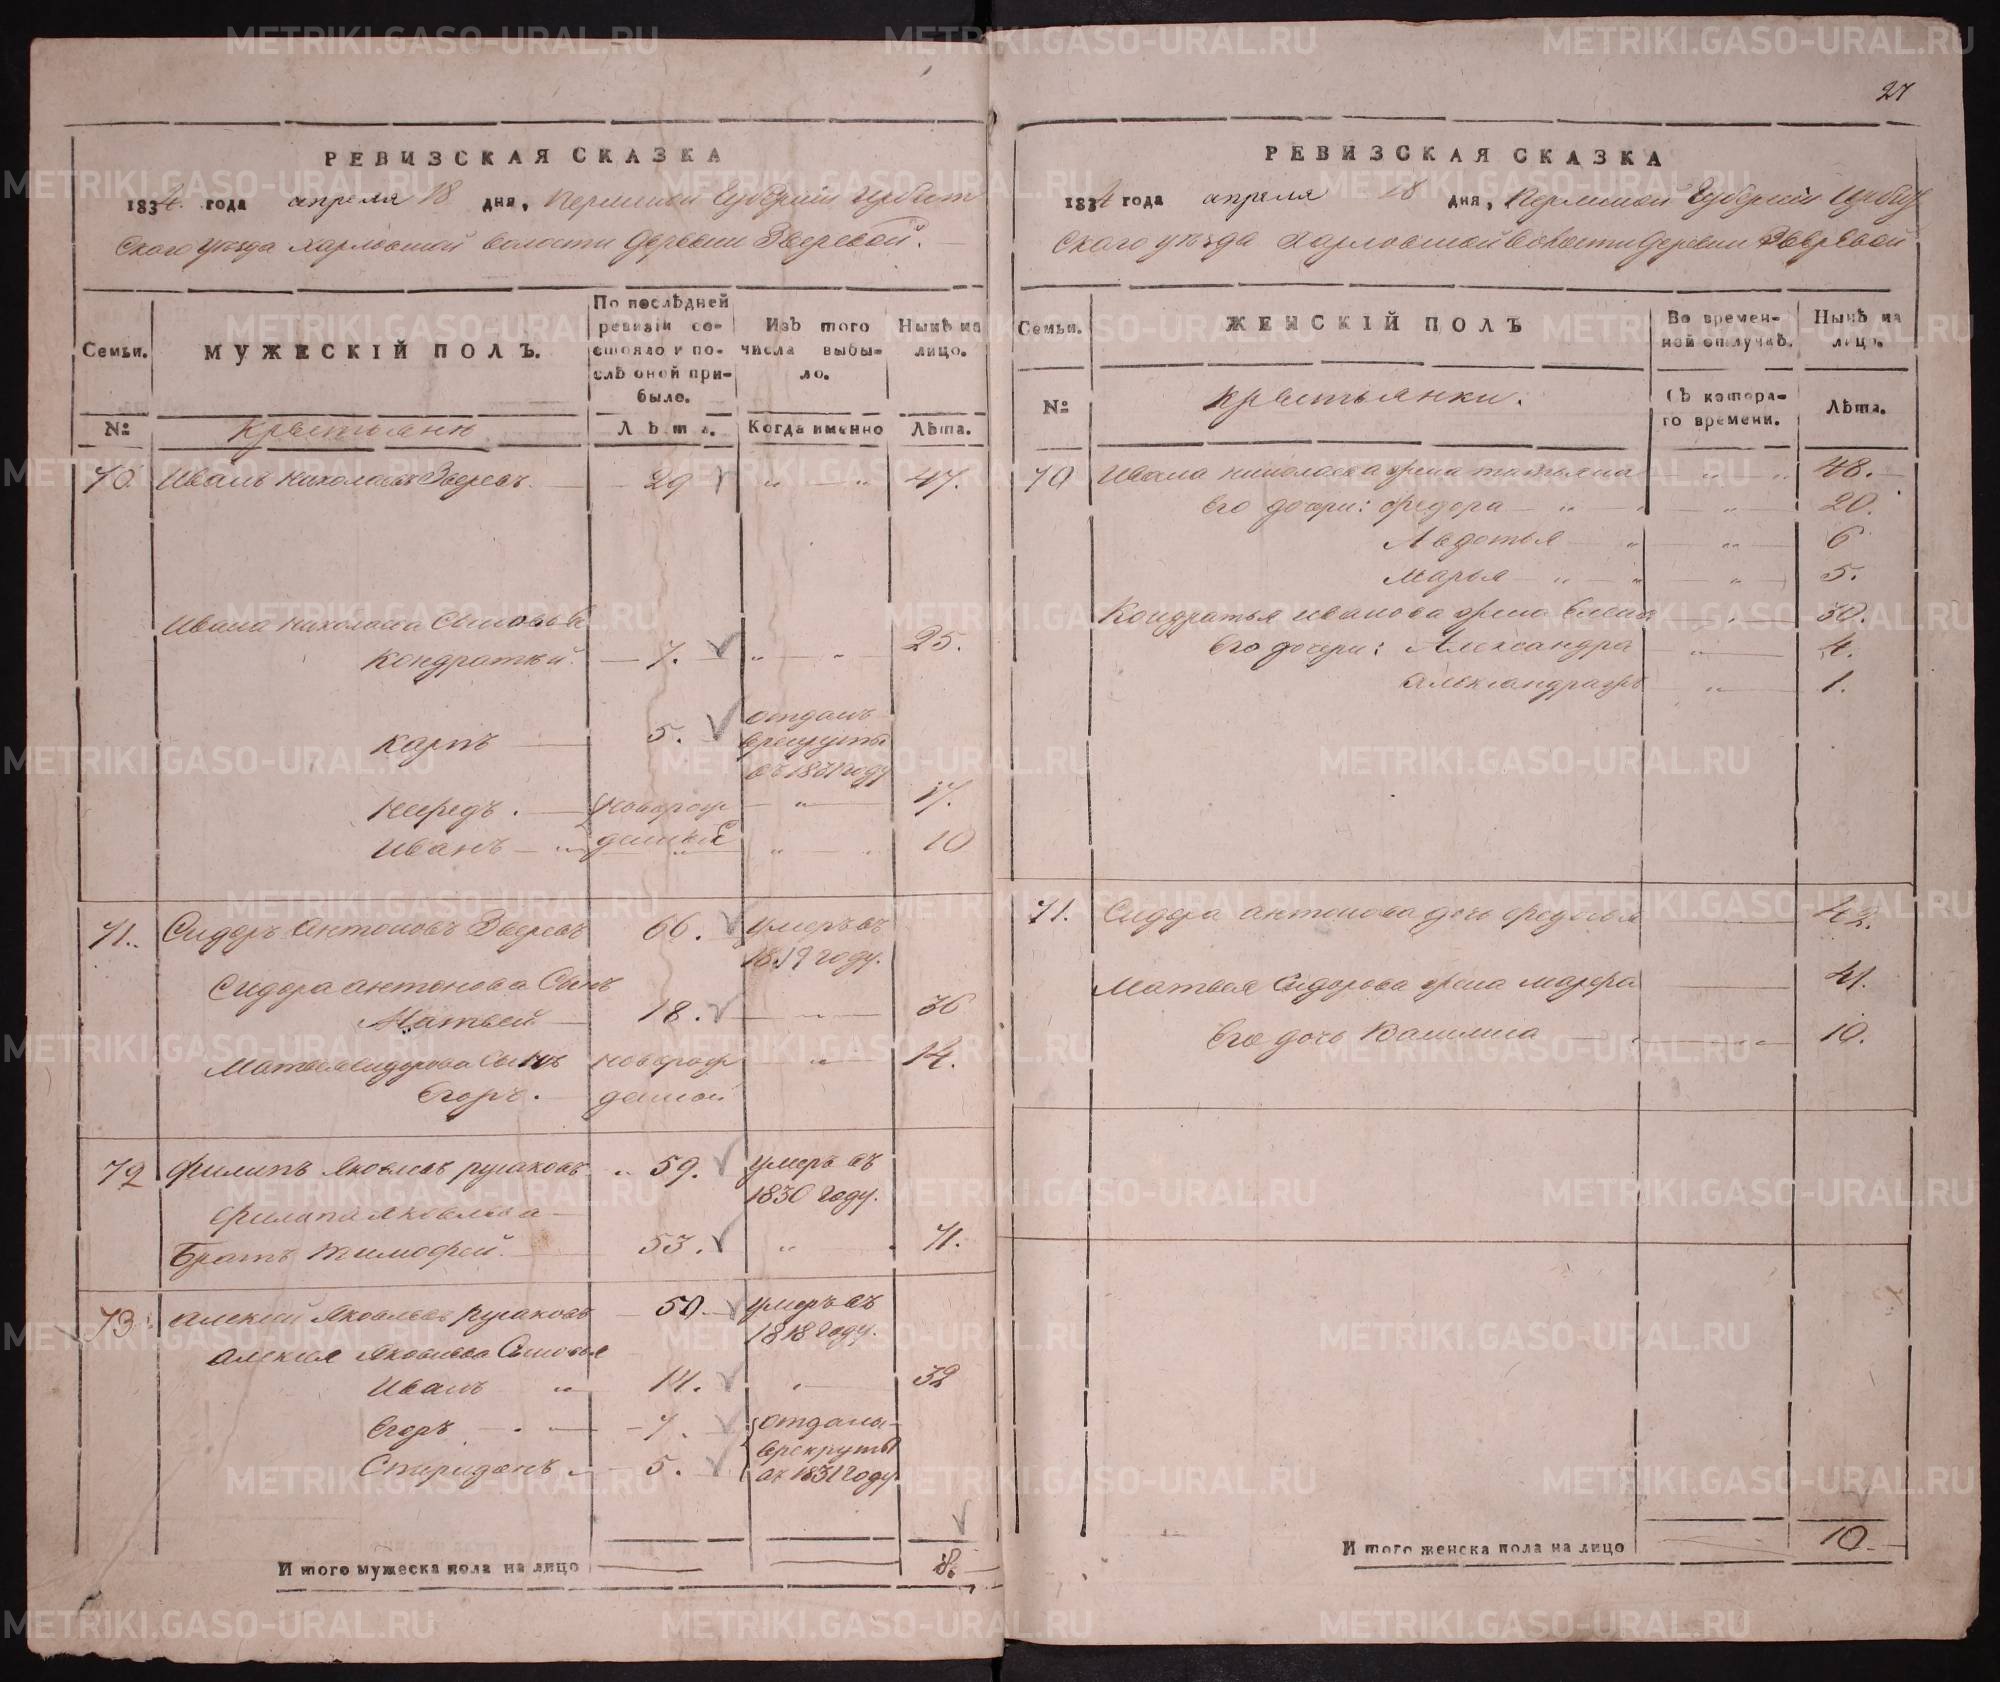 27
РЕВИЗСКАЯ СКАЗКА
1834 года апреля 18 дня, Пермской Губернiи Ирбит
ского уезда Харловской волости Деревни Зверевой.
Семьи.
МУЖЕСКІЙ ПОЛЪ.
По послѣдней ревизіи состояло и послѣ оной прибыло.
Изъ того числа выбыло.
Нынѣ на лицо.
№
Крестьяне
Лѣта.
Когда именно
Лѣта.
70 Иванъ Николаевъ Зверевъ. 29 47.
Ивана Николаева Сыновья
Кондратей. 7. 25.
Карпъ 5. отданъ
врекруты
въ 1831 году
новорож 17.
Иванъ денные 10
71. Сидоръ Антоновъ Зверевъ 66. умеръ въ
1819 году.
Сидора антонова Сынъ
Матвей 18. 36
Матвея Сидорова Сынъ новорож 14.
Егоръ. денной
72 Филипъ Яковлевъ русаковъ 59. умеръ въ
1830 году.
Филипа яковлева
Братъ Тимофей. 53. 71.
73. Алексей Яковлевъ Русаковъ 50. умеръ въ
1818 году.
Алексея Яковлева Сыновья
Иванъ 14. 32
Егоръ 7. отданы
Спиридонъ 5. врекруты
въ 1831 году
Итого мужеска пола на лицо 8.
РЕВИЗСКАЯ СКАЗКА
1834 года апреля 18 дня, Пермской Губернiи Ирбит
ского уезда Харловской волости Деревни Зверевой
Семьи.
ЖЕНСКІЙ ПОЛЪ
Во временной отлучкѣ.
Нынѣ на лицо.
№
Крестьянки.
Съ котораго времени.
Лѣта.
70 Ивана николаева жена татьяна 48.
Его дочери: федора 20.
Авдотья 6
Марья 5.
Кондратья иванова жена Елена 30.
Его дочери: Александра 4.
1.
71. Сидора антонова дочь федосья 42.
Матвея Сидорова жена марфа 41.
Его дочь Василиса 10.
Итого женска пола на лицо 10.
METRIKI.GASO-URAL.RU